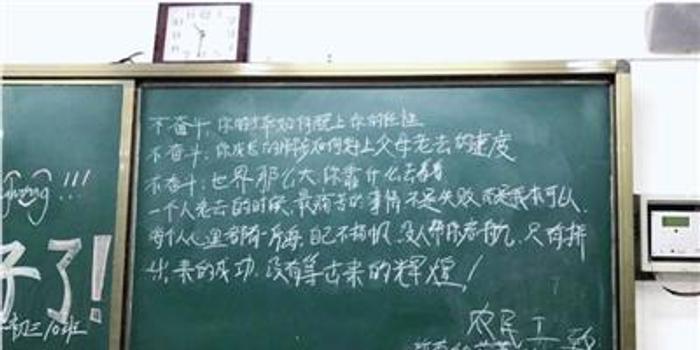 不奋斗,你的才华如何配上你的任性
不奋斗,你成长的脚步如何赶上父母老去的速度
不奋斗,世界那么大你靠什么去看看
一个人老去的时候,最痛苦的事情不是失败而是我本可以.
每个人心里都有一片海,自己不扬帆,没人帮你启航,只有拼
出来的成功,没有等出来的辉煌!
农民工
子了!
初三10班